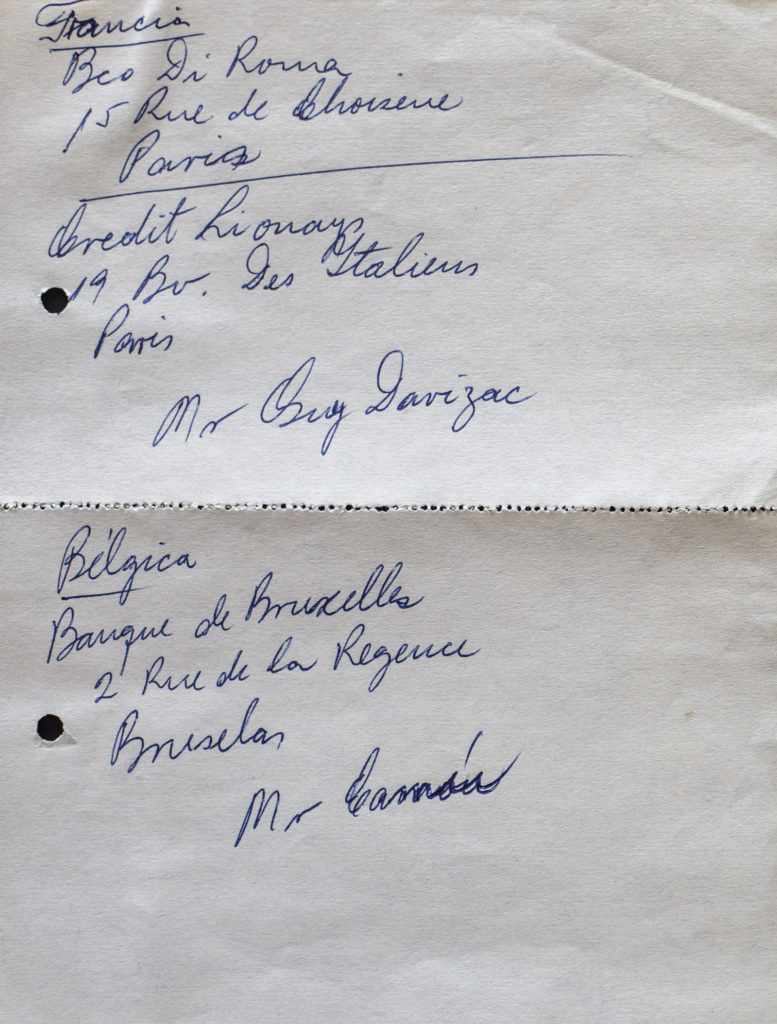 Francia
Bco Di Roma
15 Rue de Choiseue
Paris
Credit Lionays
19 Bv. Des Italiens
Paris
Mr Guy Davizac
Bélgica
Banque de Bruxelles
2 Rue de la Regence
Bruselas
Mr